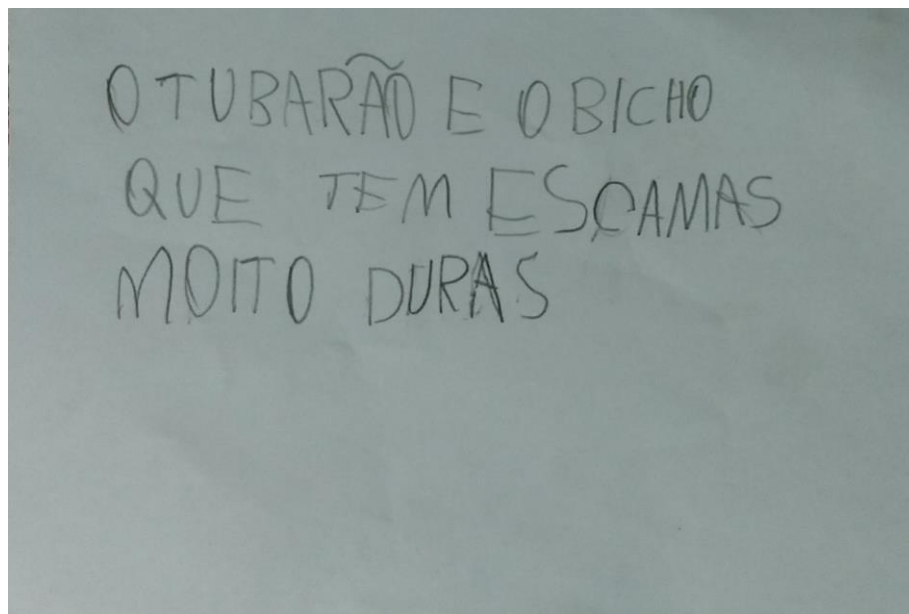 O TUBARÃO E O BICHO
QUE TEM ESCAMAS
MOITO DURAS